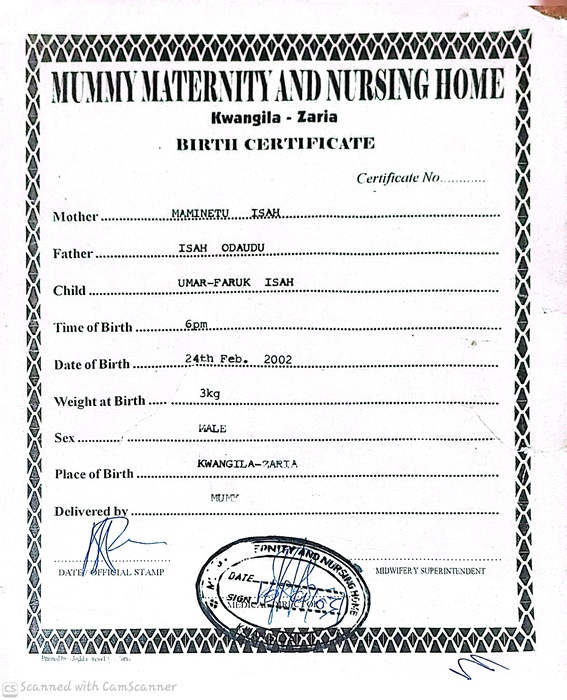 MUMMY MATERNITY AND NURSING HOME
Kwangila - Zaria
BIRTH CERTIFICATE
Certificate No............
Mother MAMINETU ISAH
Father ISAH ODAUDU
Child UMAR-FARUK ISAH
Time of Birth 6pm
Date of Birth 24th Feb. 2002
Weight at Birth 3kg
Sex MALE
Place of Birth KWANGILA-ZARIA
Delivered by MUMY
DATE/ OFFICIAL STAMP
MIDWIFERY SUPERINTENDENT
MEDICAL DIRECTOR
ERNITY AND NURSING HOME
DATE
SIGN
CS Scanned with CamScanner